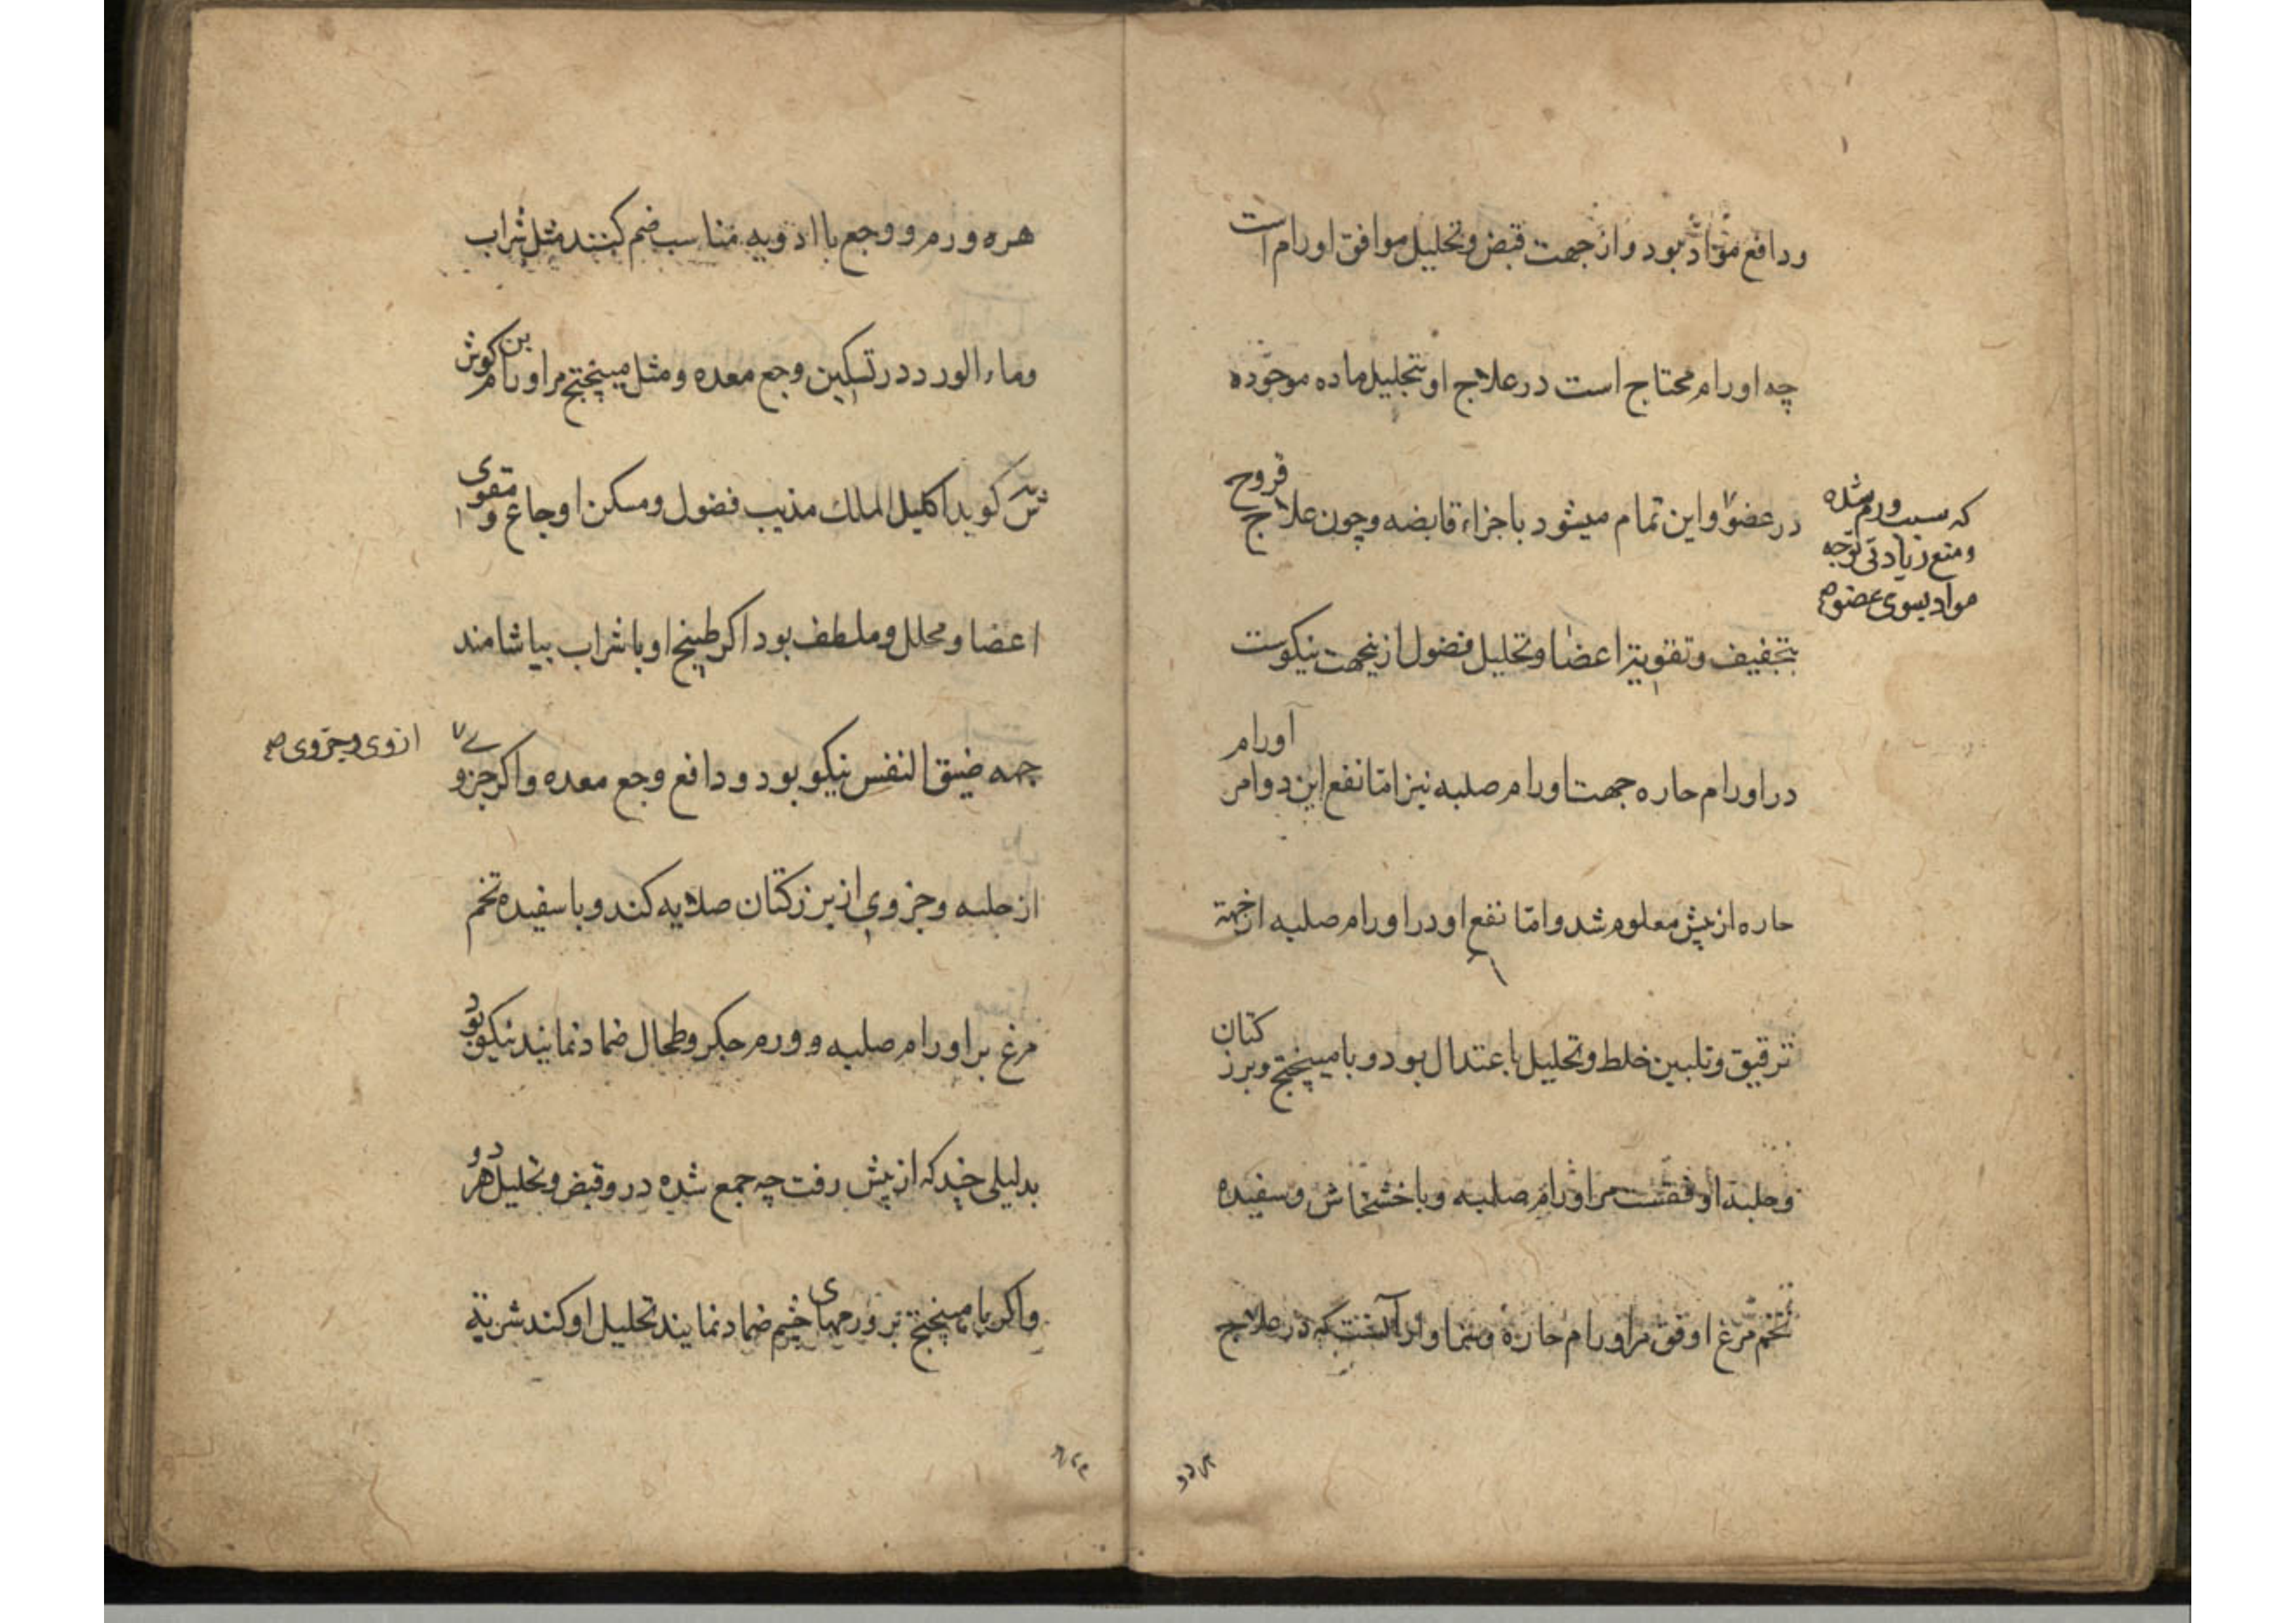 ودافع موادّ بود و از جهت قبض و تحلیل موافق اورام است
چه اورام محتاج است در علاج او بتحلیل ماده موجوده
در عضو و این تمام میشود باجزاء قابضه و چون علاج قروح
که سبب ورم شده
و منع زیادتی توجه
مواد بسوی عضو صح
بتجفیف و تقویة اعضا و تحلیل فضول ازینجهت نیکوست
در اورام حاره جهت اورام صلبه نیز امّا نفع این دو امر اورام
حاره از پیش معلوم شد و امّا نفع او در اورام صلبه از جهة
ترقیق و تلیین خلط و تحلیل باعتدال بود و با میپختج و برز کتان
و حلبه اوفقست مر اورام صلبه و با خشخاش و سفیده
تخم مرغ اوفق مر اورام حاره در علاج
هره ورم و وجع با ادویه مناسب ضم کنند مثل شراب
وماء الورد در تسکین وجع معده و مثل میپختج مر اورام بن کوش
ش کوید اکلیل الملك مذیب فضول و مسکن اوجاع و مقوی
اعضا و محلل و ملطف بود اکر طبیخ او با شراب بیاشامند
جهه ضیق النفس نیکو بود و دافع وجع معده و اکر جزوی
از وی و جزوی صح
از حلبه و جزوی از برز کتان صلایه کند و با سفیده تخم
مرغ بر اورام صلبه و ورم جکر و طحال ضماد نمایند نیکو بود
بدلیلی چند که از پیش رفت چه جمع شده درو قبض و تحلیل هر دو
و اکر با میپختج بر ورمهای چشم ضماد نمایند تحلیل او کند شربة